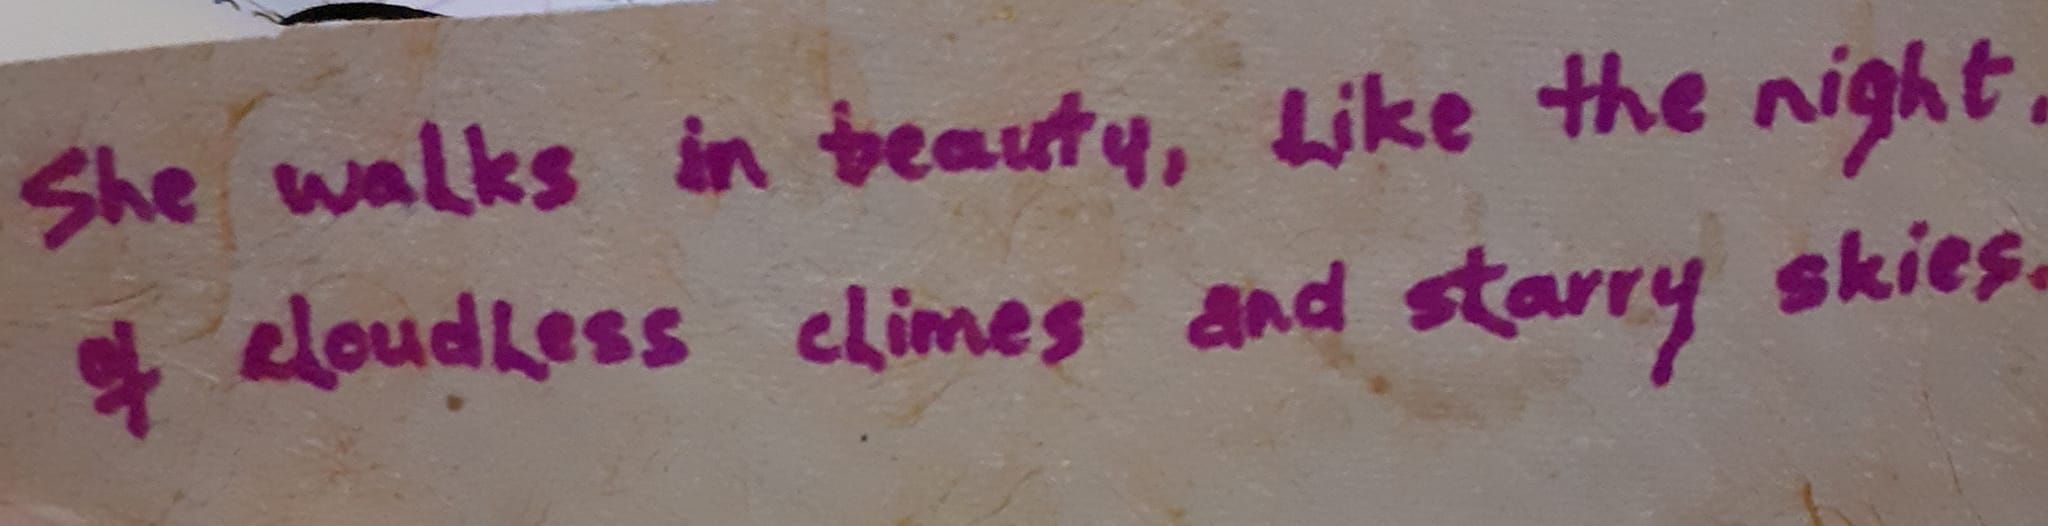 She walks in beauty, Like the night.
of cloudless climes and starry skies.